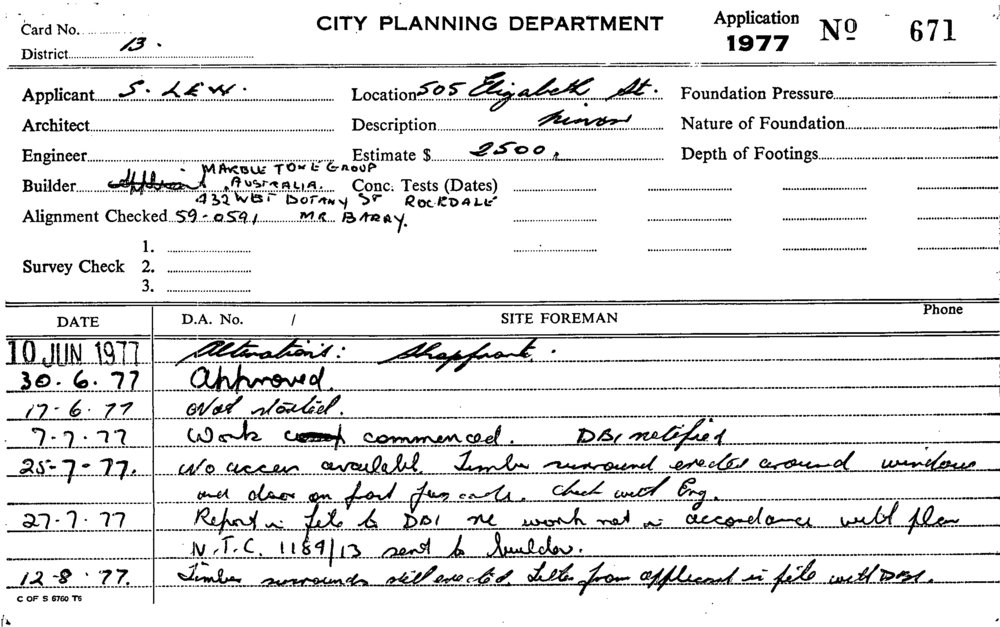 Card No.
CITY PLANNING DEPARTMENT
Application
1977 Nº 671
District 13.
Applicant S. LEW. Location 505 Elizabeth St. Foundation Pressure
Architect Description Minor Nature of Foundation
Engineer Estimate $ 2500. Depth of Footings
MARBLE TONE GROUP
Builder AUSTRALIA. Conc. Tests (Dates)
432 WEST BOTANY ST ROCKDALE
Alignment Checked 59-0591 MR BARRY.
1.
Survey Check 2.
3.
DATE D.A. No. / SITE FOREMAN Phone
10 JUN 1977 Alterations: Shopfront.
30.6.77 Approved.
17-6.77 Not started.
7-7.77 Work commenced. DBI notified
25-7-77. No access available. Timber surround erected around windows
and door on front. Check with Eng.
27-7.77 Report in file to DBI re work not in accordance with plan
N.T.C. 1189/13 sent to builder.
12-8.77. Timber surrounds still erected. Letter from applicant in file with DBI.
C OF S 6760 T6